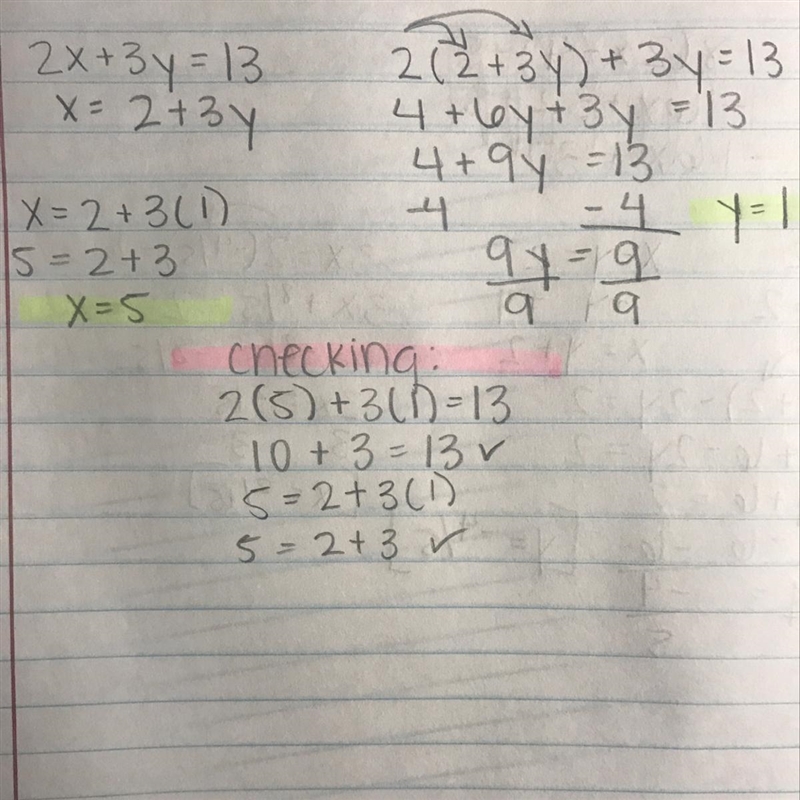 2x+3y=13
x= 2+3y
x=2+3(1)
5=2+3
x=5
2(2+3y)+3y=13
4+6y+3y=13
4+9y=13
-4 -4
9y=9
9 9
y=1
checking:
2(5)+3(1)=13
10+3=13✓
5=2+3(1)
5=2+3 ✓